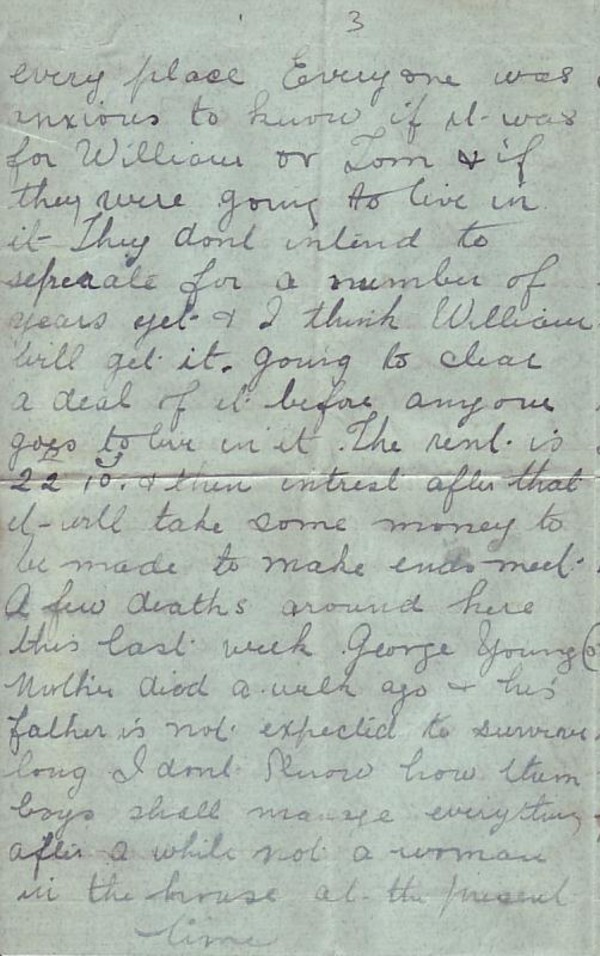 3
every place Everyone was
anxious to know if it was
for William or Tom & if
they were going to live in
it They dont intend to
seperate for a number of
years yet & I think William
will get it. going to clear
a deal of it before anyone
goes to live in it. The rent is
22 10. & then intrest after that
it will take some money to
be made to make ends meet.
A few deaths around here
this last week George Youngs
Mother died a week ago & his
father is not expected to survive
long I dont know how them
boys shall manage everything
after a while not a woman
in the house at the present
time